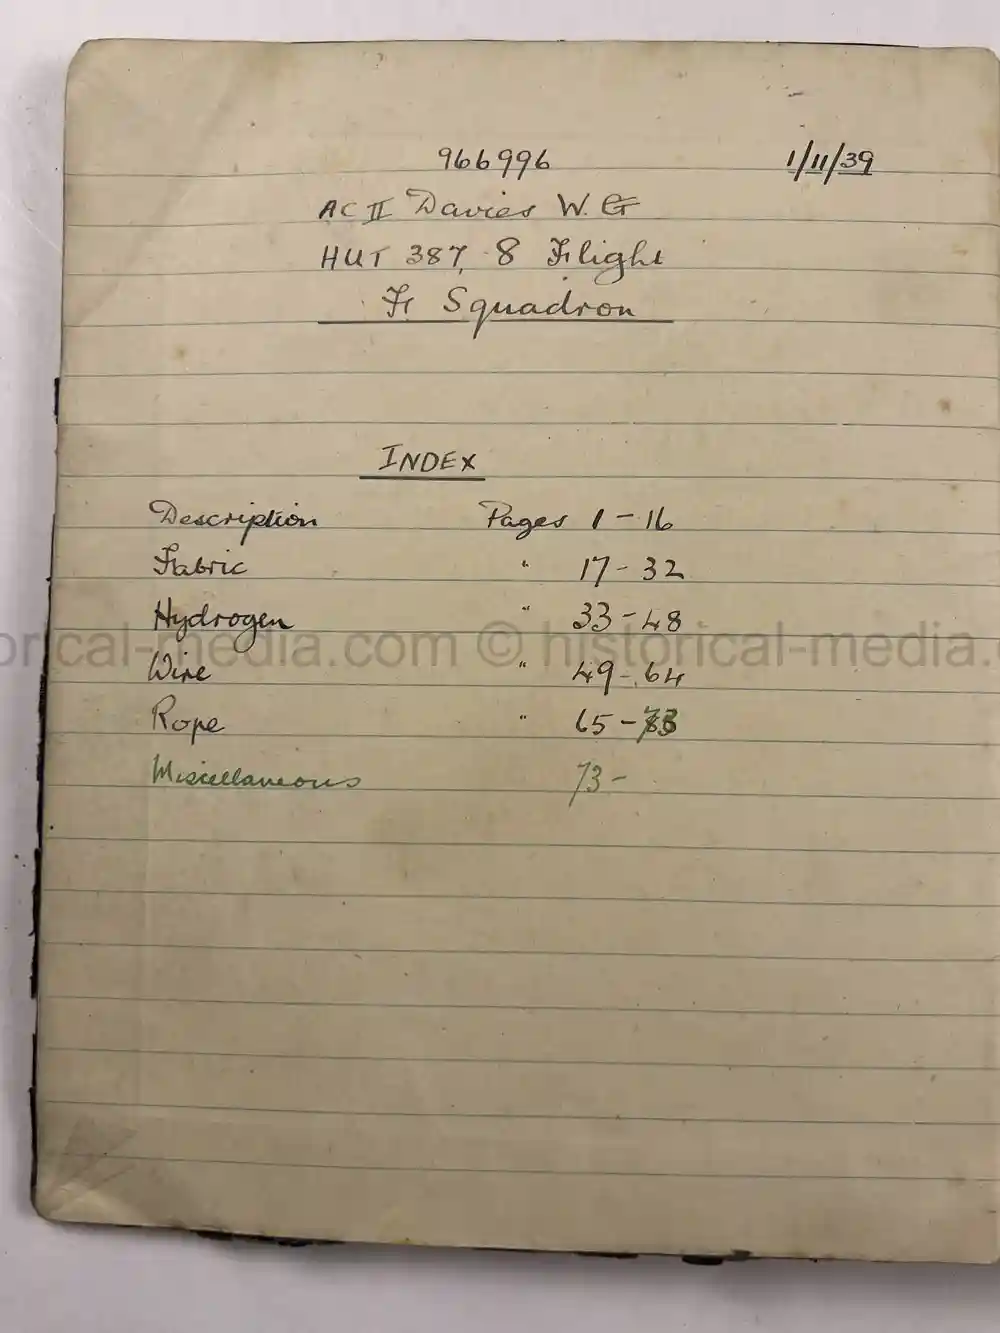 966996 1/11/39
AC II Davies W. G
HUT 387, 8 Flight
F Squadron
INDEX
Description Pages 1 - 16
Fabric " 17 - 32
Hydrogen " 33 - 48
Wire " 49 - 64
Rope " 65 -
Miscellaneous 73 -
orical-media.com © historical-media.